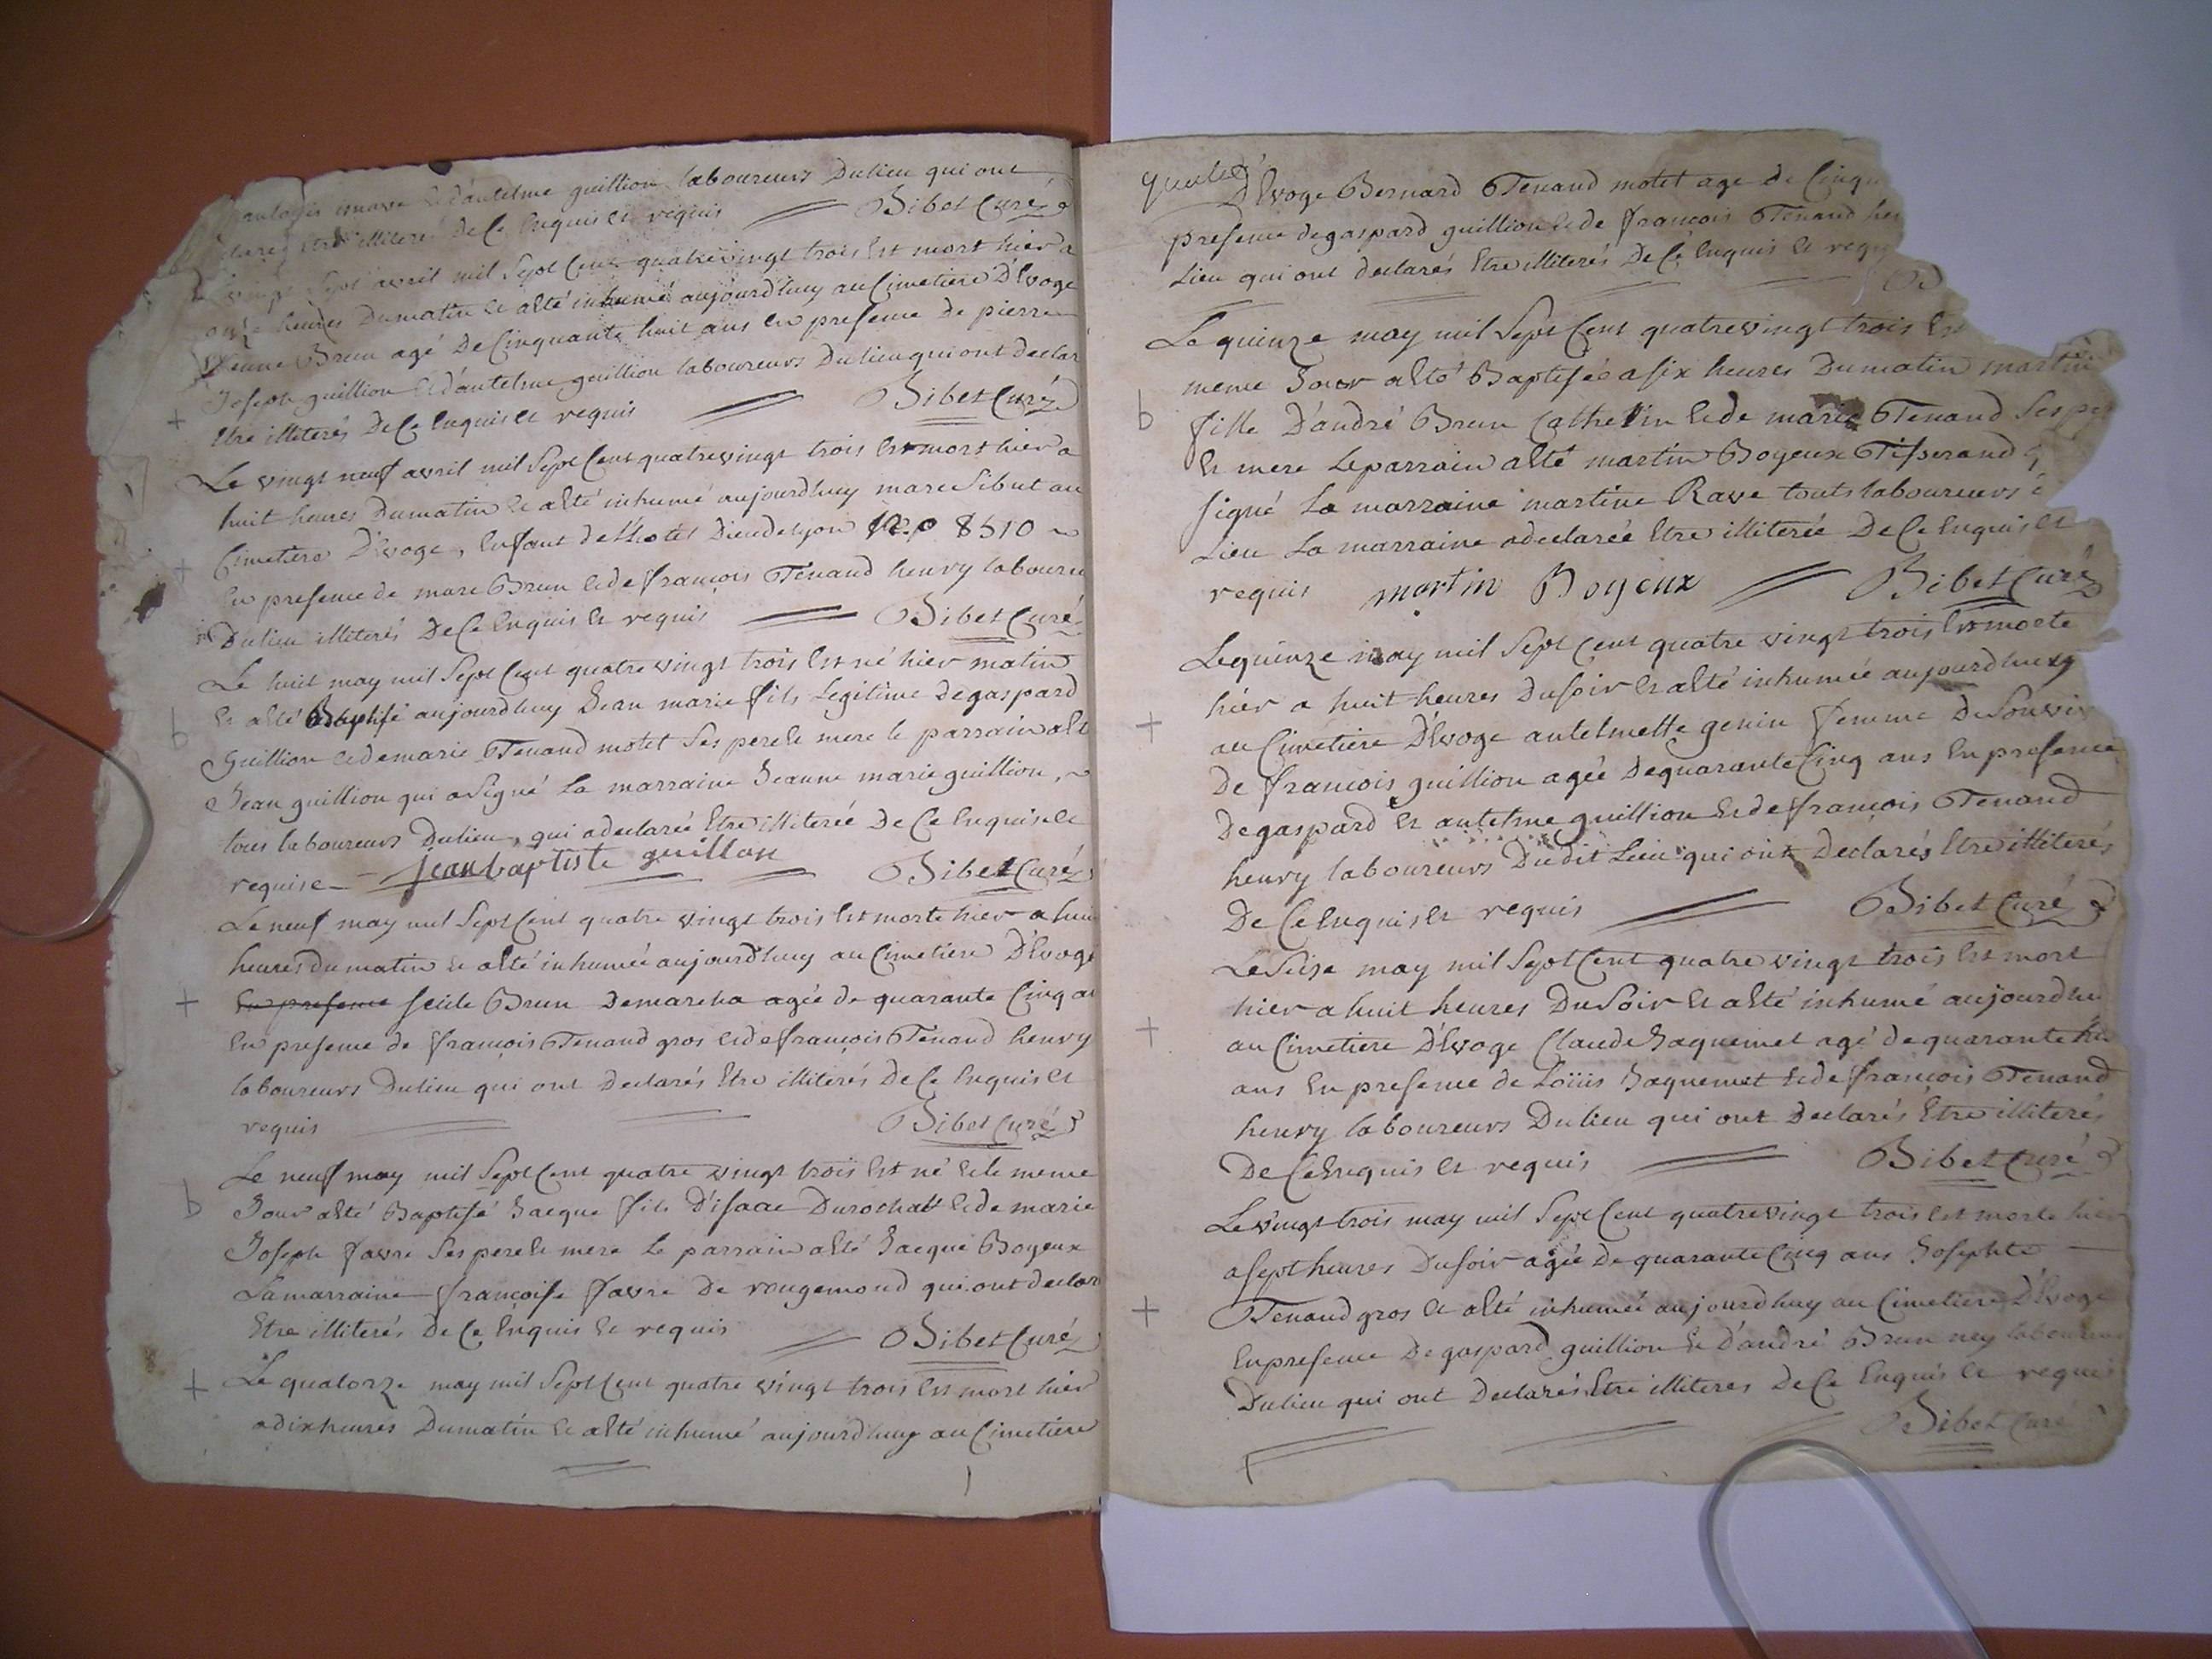 et d'antelme guillion laboureurs Dulieu qui ont
declarés Etre illiterés De Ce Enquis et requis Bibet Curé
vingt Sept avril mil Sept Cent quatrevingt trois Est mort hier a
onze heures Dumatin et aEté inhumé aujourdhuy au Cimetiere D'Evoge
Brun agé De Cinquante huit ans En presence de pierre
Joseph guillion et d'antelme guillion laboureurs Dulieu qui ont declar
Etre illiterés De Ce Enquis et requis Bibet Curé
+
Le vingt neuf avril mil Sept Cent quatrevingt trois Est mort hier a
huit heures Dumatin et aEté inhumé aujourdhuy marc Sibut au
Cimetiere D'Evoge, Enfant de l'hotel Dieu de lyon 8510
+
En presence de marc Brun et de françois Tenand henry laboureu
Dulieu illiterés De Ce Enquis et requis Bibet Curé
Le huit may mil Sept Cent quatre vingt trois Est né hier matin
b
Et aEté Baptisé aujourdhuy Jean marie fils Legitime de gaspard
Guillion et de marie Tenand motet Ses pere et mere le parrain aEt
Jean guillion qui a Signé La marraine Jeanne marie guillion,
tous laboureurs Dulieu, qui a declarée Etre illiterée De Ce Enquise et
requise jean baptiste guillon Bibet Curé
Le neuf may mil Sept Cent quatre vingt trois Est morte hier a hui
heures du matin et aEté inhumée aujourdhuy au Cimetiere D'Evoge
+
En presence Brun Demareha agée de quarante Cinq an
En presence de françois Tenand gros et de françois Tenand henry
laboureurs Dulieu qui ont Declarés Etre illiterés De Ce Enquis et
requis Bibet Curé
Le neuf may mil Sept Cent quatre vingt trois Est né et le meme
b
Jour aEté Baptisé Jacque fils D'isaac Durochatt et de marie
Joseph favre Ses pere et mere Le parrain aEté Jacque Boyeux
La marraine françoise favre De rougemond qui ont declar
Etre illiterés De Ce Enquis Et requis Bibet Curé
+
Le quatorze may mil Sept Cent quatre vingt trois Est mort hier
a dix heures Dumatin Et aEté inhumé aujourdhuy au Cimetiere
D'Evoge Bernard Tenand motet age de Cinqu
presence de gaspard guillion et de françois Tenand hen
Lieu qui ont declarés Etre illiterés De Ce Enquis et requ
Le quinze may mil Sept Cent quatrevingt trois Est
meme Jour aEté Baptisée a six heures Dumatin martin
b
fille D'andré Brun Cathelin et de marie Tenand Ses pe
Et mere Le parrain aEté martin Boyeux Tisserand
signé La marraine martine Rave touts laboureurs
Lieu La marraine a declarée Etre illiterée De Ce Enquis et
requis martin Boyeux Bibet Curé
Le quinze may mil Sept Cent quatre vingt trois Est morte
hier a huit heures Du soir Et aEté inhumée aujourdhuy
+
au Cimetiere D'Evoge antelmette genin femme De Souvir
De françois guillion agée De quarante Cinq ans En presence
De gaspard Et antelme guillion et de françois Tenand
henry laboureurs Dudit Lieu qui ont Declarés Etre illiterés
De Ce Enquis Et requis Bibet Curé
Le Seise may mil Sept Cent quatre vingt trois Est mort
hier a huit heures Du Soir Et aEté inhumé aujourdhu
+
au Cimetiere D'Evoge Claude Jaquemet agé de quarante
ans En presence de Loüis Jaquemet et de françois Tenand
henry laboureurs Dulieu qui ont Declarés Etre illiterés
De Ce Enquis Et requis Bibet Curé
Le vingt trois may mil Sept Cent quatrevingt trois Est morte hier
a sept heures Du soir agée De quarante Cinq ans Josephte
+
Tenand gros Et aEté inhumée aujourdhuy au Cimetiere D'Evoge
En presence De gaspard guillion Et D'andré Brun ney laboureu
Dulieu qui ont Declarés Etre illiterés De Ce Enquis Et requis
Bibet Curé